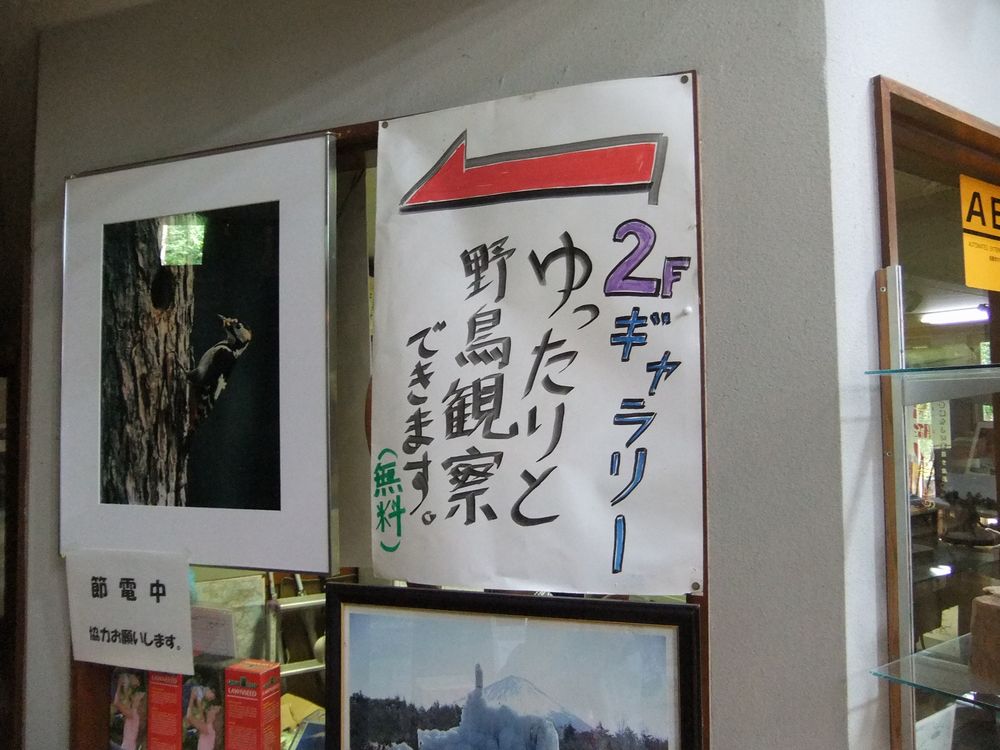 2Fギャラリー
ゆったりと
野鳥観察
できます。
(無料)
節電中
協力お願いします。
AE
LAWNSEED